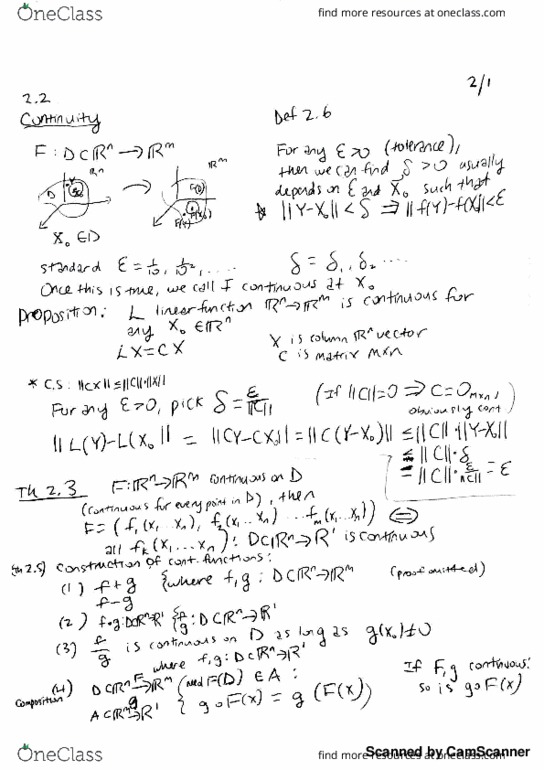 OneClass
find more resources at oneclass.com
2/1
2.2
Continuity
Def 2.6
F : D⊂ℝⁿ → ℝᵐ
For any ε>0 (tolerance),
then we can find δ>0 usually
depends on ε and X₀ such that
* ||Y-X₀|| < δ ⇒ || f(Y)-f(X)||<ε
ℝⁿ
ℝᵐ
D
X₀ ∈ D
standard ε = 1/10, 1/10², .... δ = δ₁, δ₂ ....
Once this is true, we call f continuous at X₀
Proposition: L linear function ℝⁿ→ℝᵐ is continuous for
any X₀ ∈ ℝⁿ
LX = CX
X is column ℝⁿ vector
C is matrix m×n
* C.S: ||CX|| ≤ ||C||·||X||
For any ε>0, pick δ = ε/||C||
(If ||C||=0 ⇒ C=0ₘₓₙ,
obviously cont)
|| L(Y)-L(X₀)|| = ||CY-CX₀|| = ||C(Y-X₀)|| ≤ ||C||·||Y-X₀||
≤ ||C||·δ
= ||C||·ε/||C|| = ε
Th 2.3 F: ℝⁿ→ℝᵐ continuous on D
(continuous for every point in D), then
F = (f₁(x₁...xₙ), f₂(x₁...xₙ) ... fₘ(x₁...xₙ)) ⇔
all fₖ(x₁...xₙ): D⊂ℝⁿ→ℝ' is continuous
(th 2.5) construction of cont. functions:
(1) f+g {where f,g : D⊂ℝⁿ→ℝᵐ (proof omitted)
f-g
(2) f•g: D⊂ℝⁿ→ℝ' {f g : D⊂ℝⁿ→ℝ'
(3) f/g is continuous on D as long as g(x₀)≠0
where f,g: D⊂ℝⁿ→ℝ'
(4) D⊂ℝⁿ F→ ℝᵐ (need F(D) ∈ A :
composition A⊂ℝᵐ g→ ℝ' { g∘F(x) = g (F(x))
If F, g continuous:
so is g∘F(x)
OneClass
find more resources at oneclass.com
Scanned by CamScanner